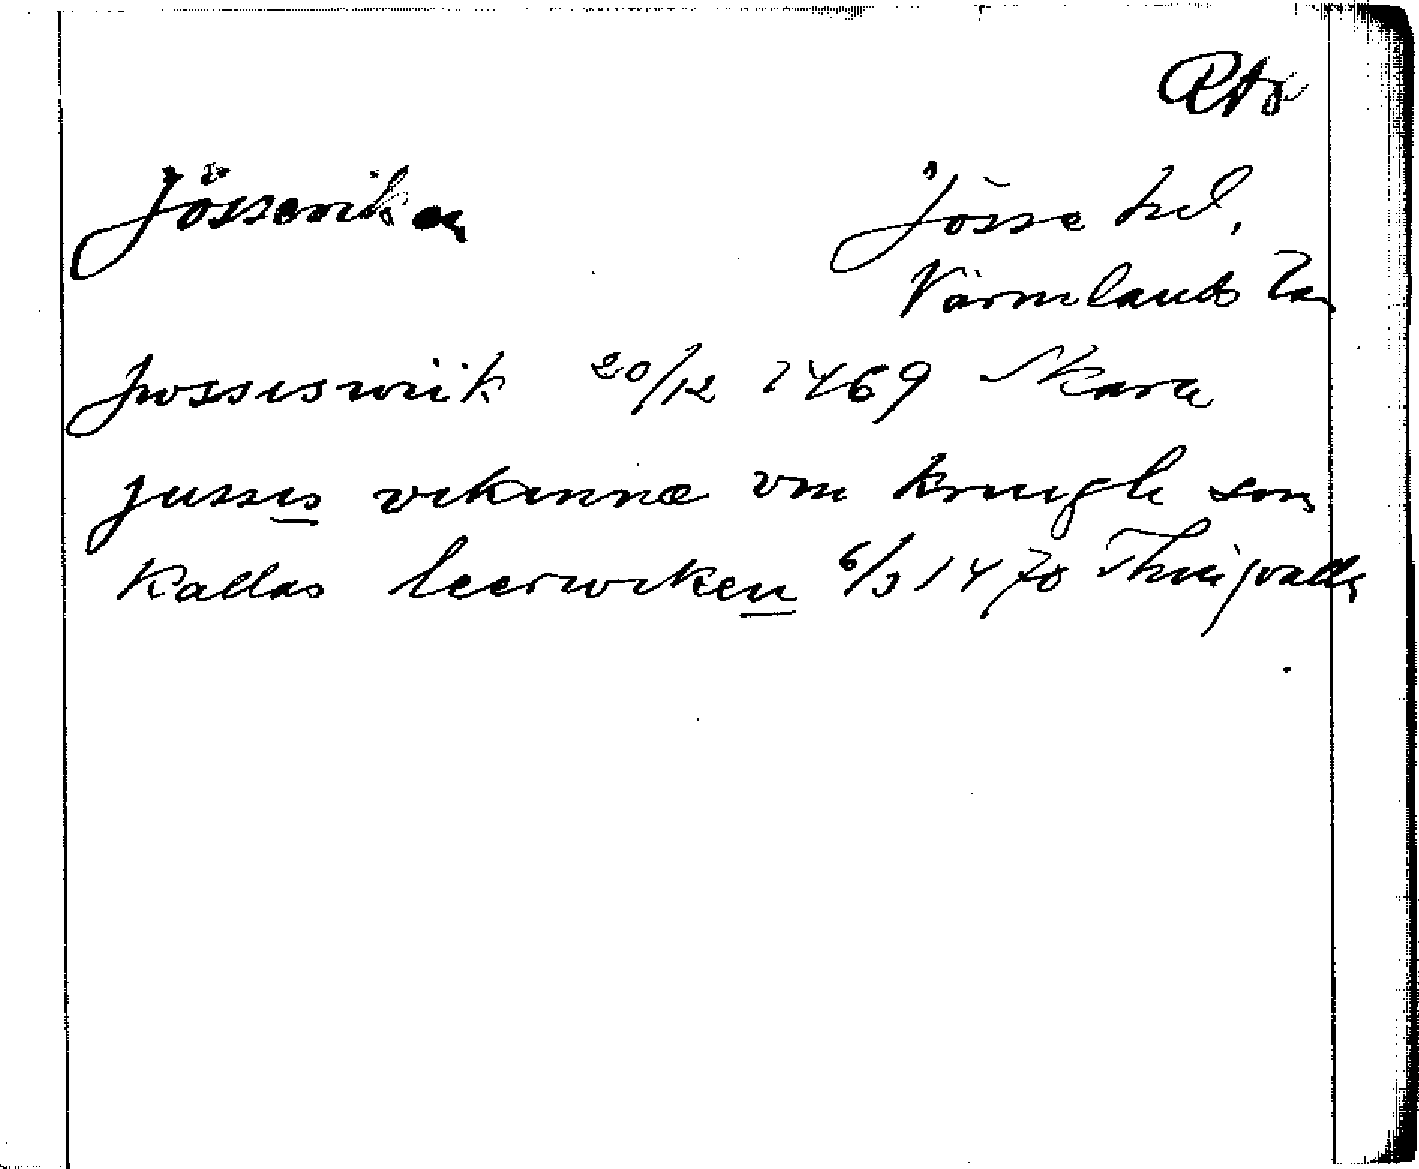 RAp
Jösseviken
Jösse hd.
Värmlands län
Jwssiswiik 20/12 1469 Skara
jussis vikinnæ vm kringh som
kallas leerwiken 6/3 1470 Thingvalla